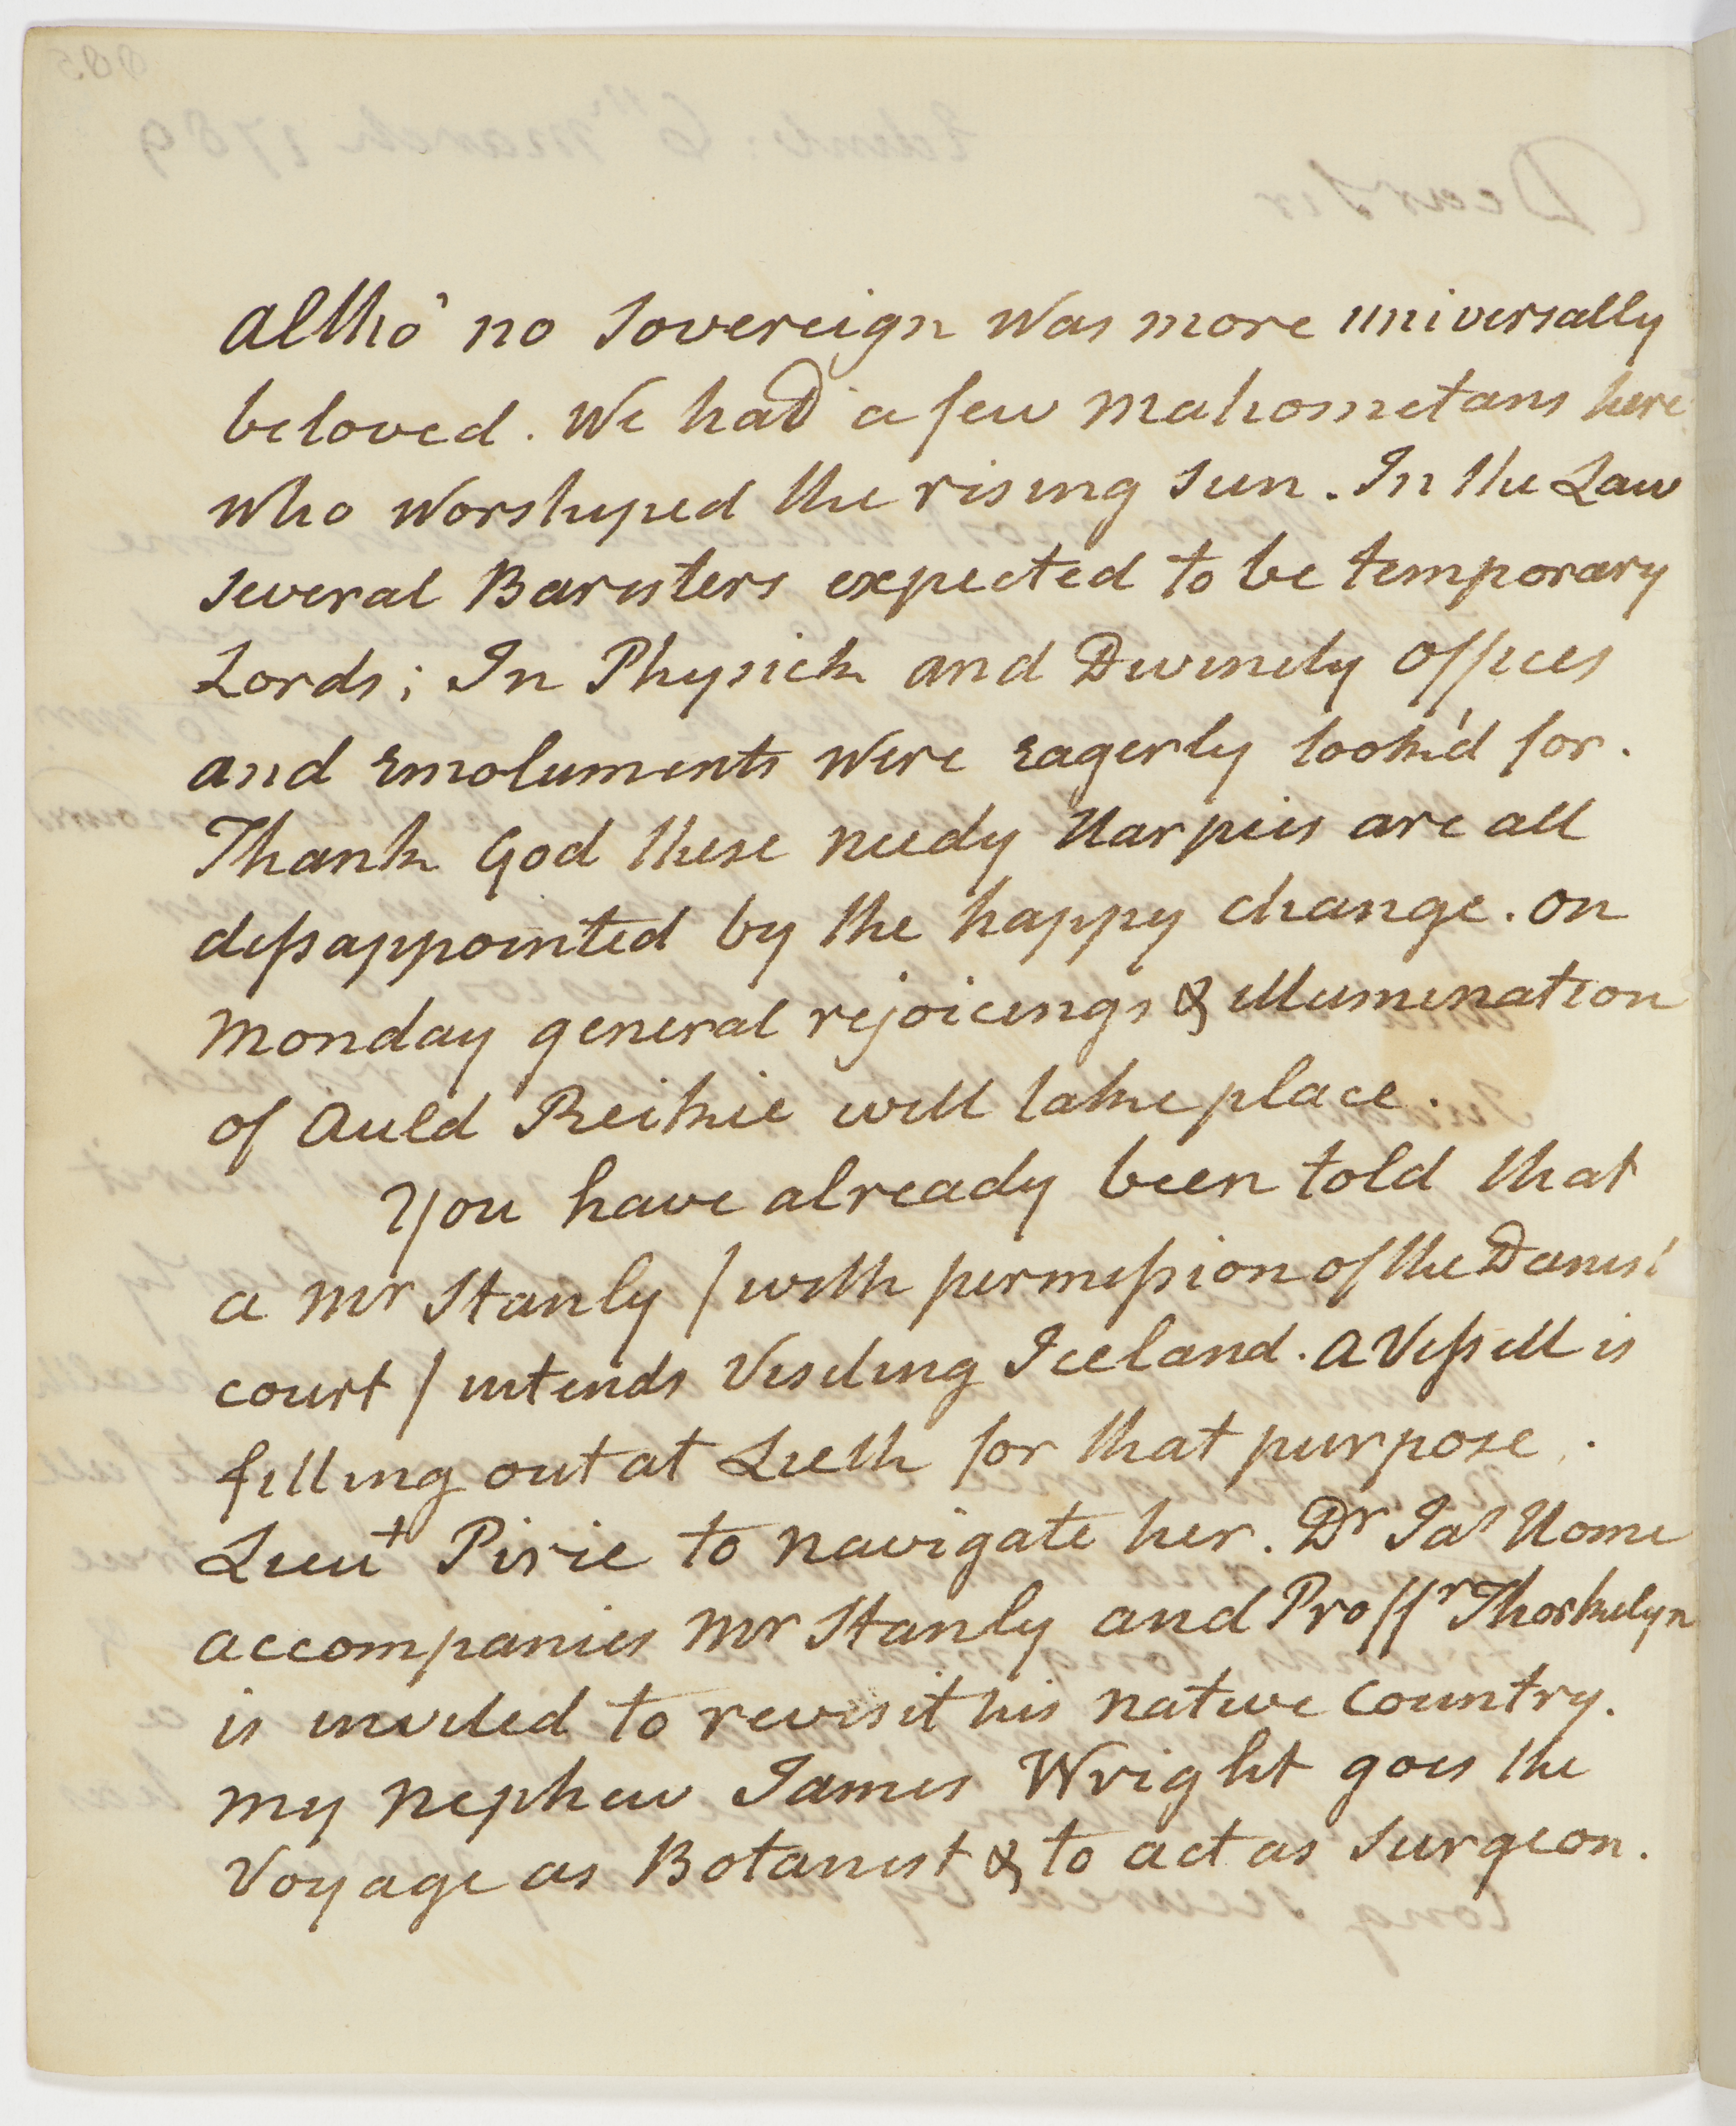 altho' no Sovereign was more universally
beloved. We had a few Mahometans here
who worshyped the rising Sun. In the Law
several Baristers expected to be temporary
Lords; In Physick and Divinity offices
and Emoluments were Eagerly look'd for.
Thank God these needy Harpies are all
dissappointed by the happy change. On
Monday general rejoicings & illumination
of Auld Reikie will take place.
You have already been told that
a Mr Stanly / with permission of the Danish
court / intends Visiting Iceland. A Vessell is
fitting out at Lieth for that purpose.
Lieut Pirie to navigate her. Dr Jas Home
accompanies Mr Stanly and Proffr Thorkelyn
is invited to revisit his native Country.
My Nephew James Wright goes the
Voyage as Botanist & to act as Surgeon.